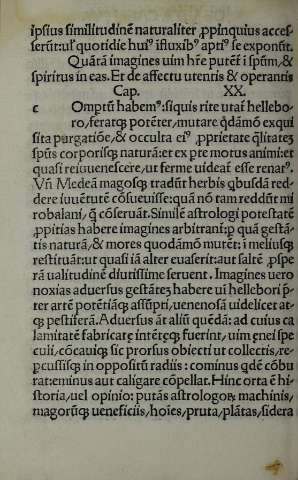 ipsius similitudinē naturaliter ꝓpinquius acces-
serūt: uꝉ quotidie hui⁹ ifluxib⁹ apti⁹ se exponūt.
Quātā imagines uim hr̄e putēt i spūm, &
spiritus in eas. Et de affectu utentis & operantis
Cap. XX.
c Omptū habem⁹: siquis rite utat̄ hellebo
ro, feratqꝫ potēter, mutare q̇dāmō exqui
sita purgatiōe, & occulta ei⁹ ꝓprietate q̄litatē
spūs corporisqꝫ naturā: et ex pte motus animi: et
quasi reiuuenescere, ut ferme uideat̄ esse renat⁹.
Vñ Medeā magosqꝫ tradūt herbis qbusdā red
dere iuuētutē cōsueuisse: quā nō tam reddūt mi
robalani, q̄ cōseruāt. Similē astrologi potestatē
ꝓpitias habere imagines arbitrant̄: ꝑ quā gestā-
tis naturā, & mores quodāmō mutēt: i meliusqꝫ
restituāt: ut quasi iā alter euaserit: aut saltē ꝓspe
rā ualitudinē diutissime seruent. Imagines uero
noxias aduersus gestātē habere ui hellebori p̄
ter artē potētiāqꝫ assūpti, uenenosā uidelicet at-
qꝫ pestiferā. Aduersus āt aliū quēdā: ad cuius ca
lamitatē fabricatę intētęqꝫ fuerint, uim ęnei spe
culi, cōcauiqꝫ sic prorsus obiecti ut collectis, re-
ꝑcussisqꝫ in oppositū radiis: cominus q̇dē cōbu
rat: eminus aut caligare cōpellat. Hinc orta ē hi
storia, uel opinio: putās astrologoꝝ machinis,
magorūqꝫ ueneficiis, hoīes, pruta, plātas, sidera